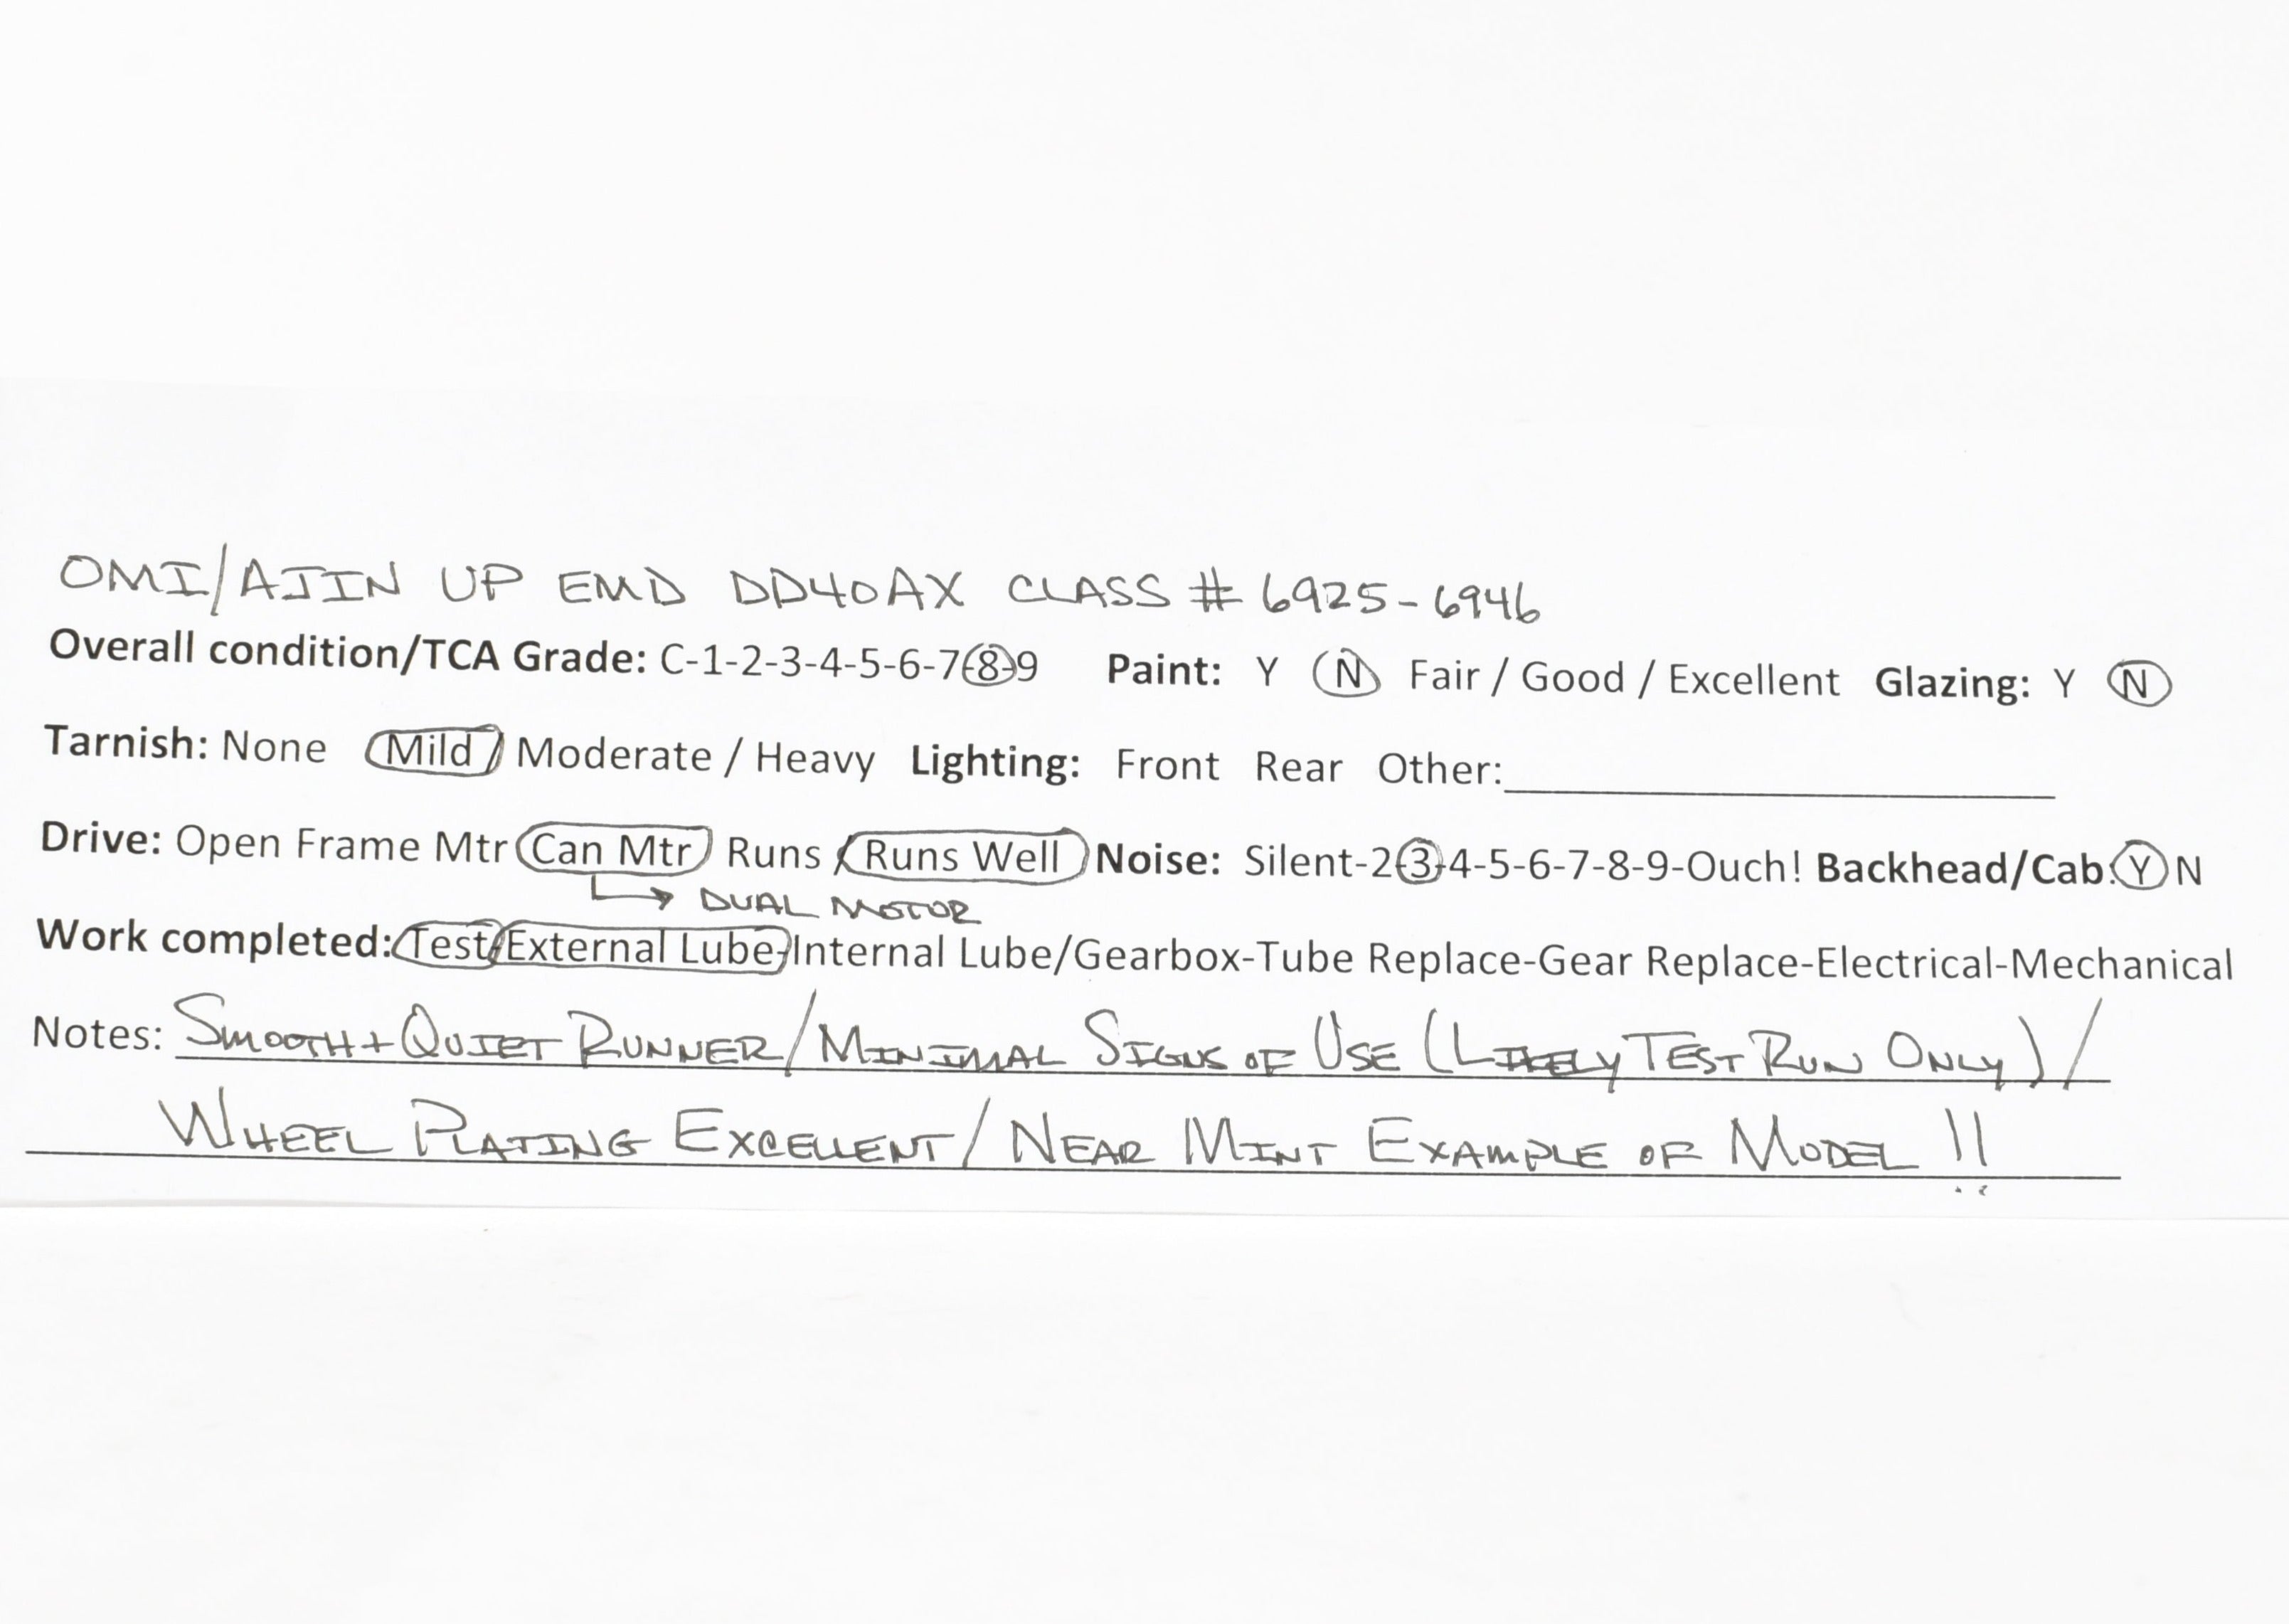 OMI/AJIN UP EMD DD40AX CLASS # 6925-6946
Overall condition/TCA Grade: C-1-2-3-4-5-6-7-8-9 Paint: Y N Fair / Good / Excellent Glazing: Y N
Tarnish: None Mild / Moderate / Heavy Lighting: Front Rear Other:
Drive: Open Frame Mtr Can Mtr Runs / Runs Well Noise: Silent-2-3-4-5-6-7-8-9-Ouch! Backhead/Cab: Y N
DUAL MOTOR
Work completed: Test/External Lube-Internal Lube/Gearbox-Tube Replace-Gear Replace-Electrical-Mechanical
Notes: SMOOTH + QUIET RUNNER/MINIMAL SIGNS OF USE (LIKELY TEST RUN ONLY)/
WHEEL PLATING EXCELLENT/NEAR MINT EXAMPLE OF MODEL !!